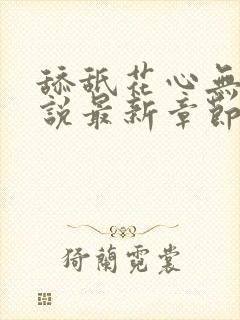 舔舐花心無
說最新章節
猗蘭霓裳